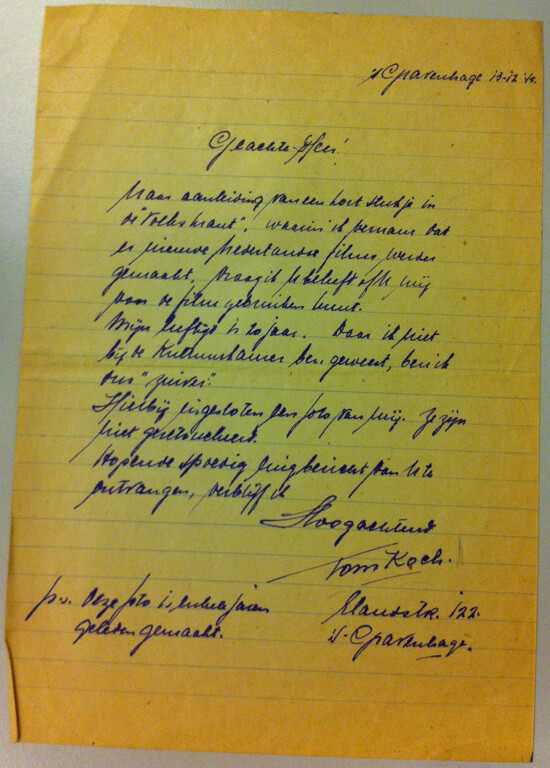 's Gravenhage 13-12
Geachte Heer!
Naar aanleiding van een kort stukje in
de "Volkskrant", waarin ik vernam dat
er nieuwe Nederlandse films werden
gemaakt, vraag ik U beleeft of U mij
voor de film gebruiken kunt.
Mijn leeftijd is 20 jaar. Daar ik niet
bij de Kultuurkamer ben geweest, ben ik
dus "zuiver".
Hierbij ingesloten een foto van mij. Ze zijn
niet geretoucheerd.
Hopende spoedig enig bericht van U te
ontvangen, verblijf ik
Hoogachtend
Tom Koch.
p.s. Deze foto is enkele jaren
geleden gemaakt.
Elandstr. 122.
's-Gravenhage.